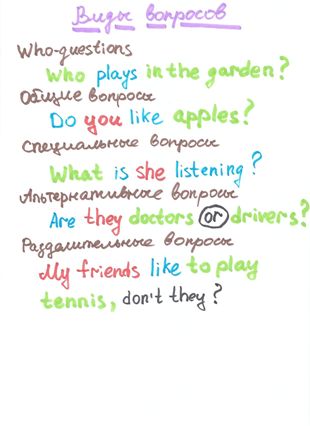 Виды вопросов
Who-questions
Who plays in the garden?
Общие вопросы
Do you like apples?
Специальные вопросы
What is she listening?
Альтернативные вопросы
Are they doctors or drivers?
Разделительные вопросы
My friends like to play
tennis, don't they?